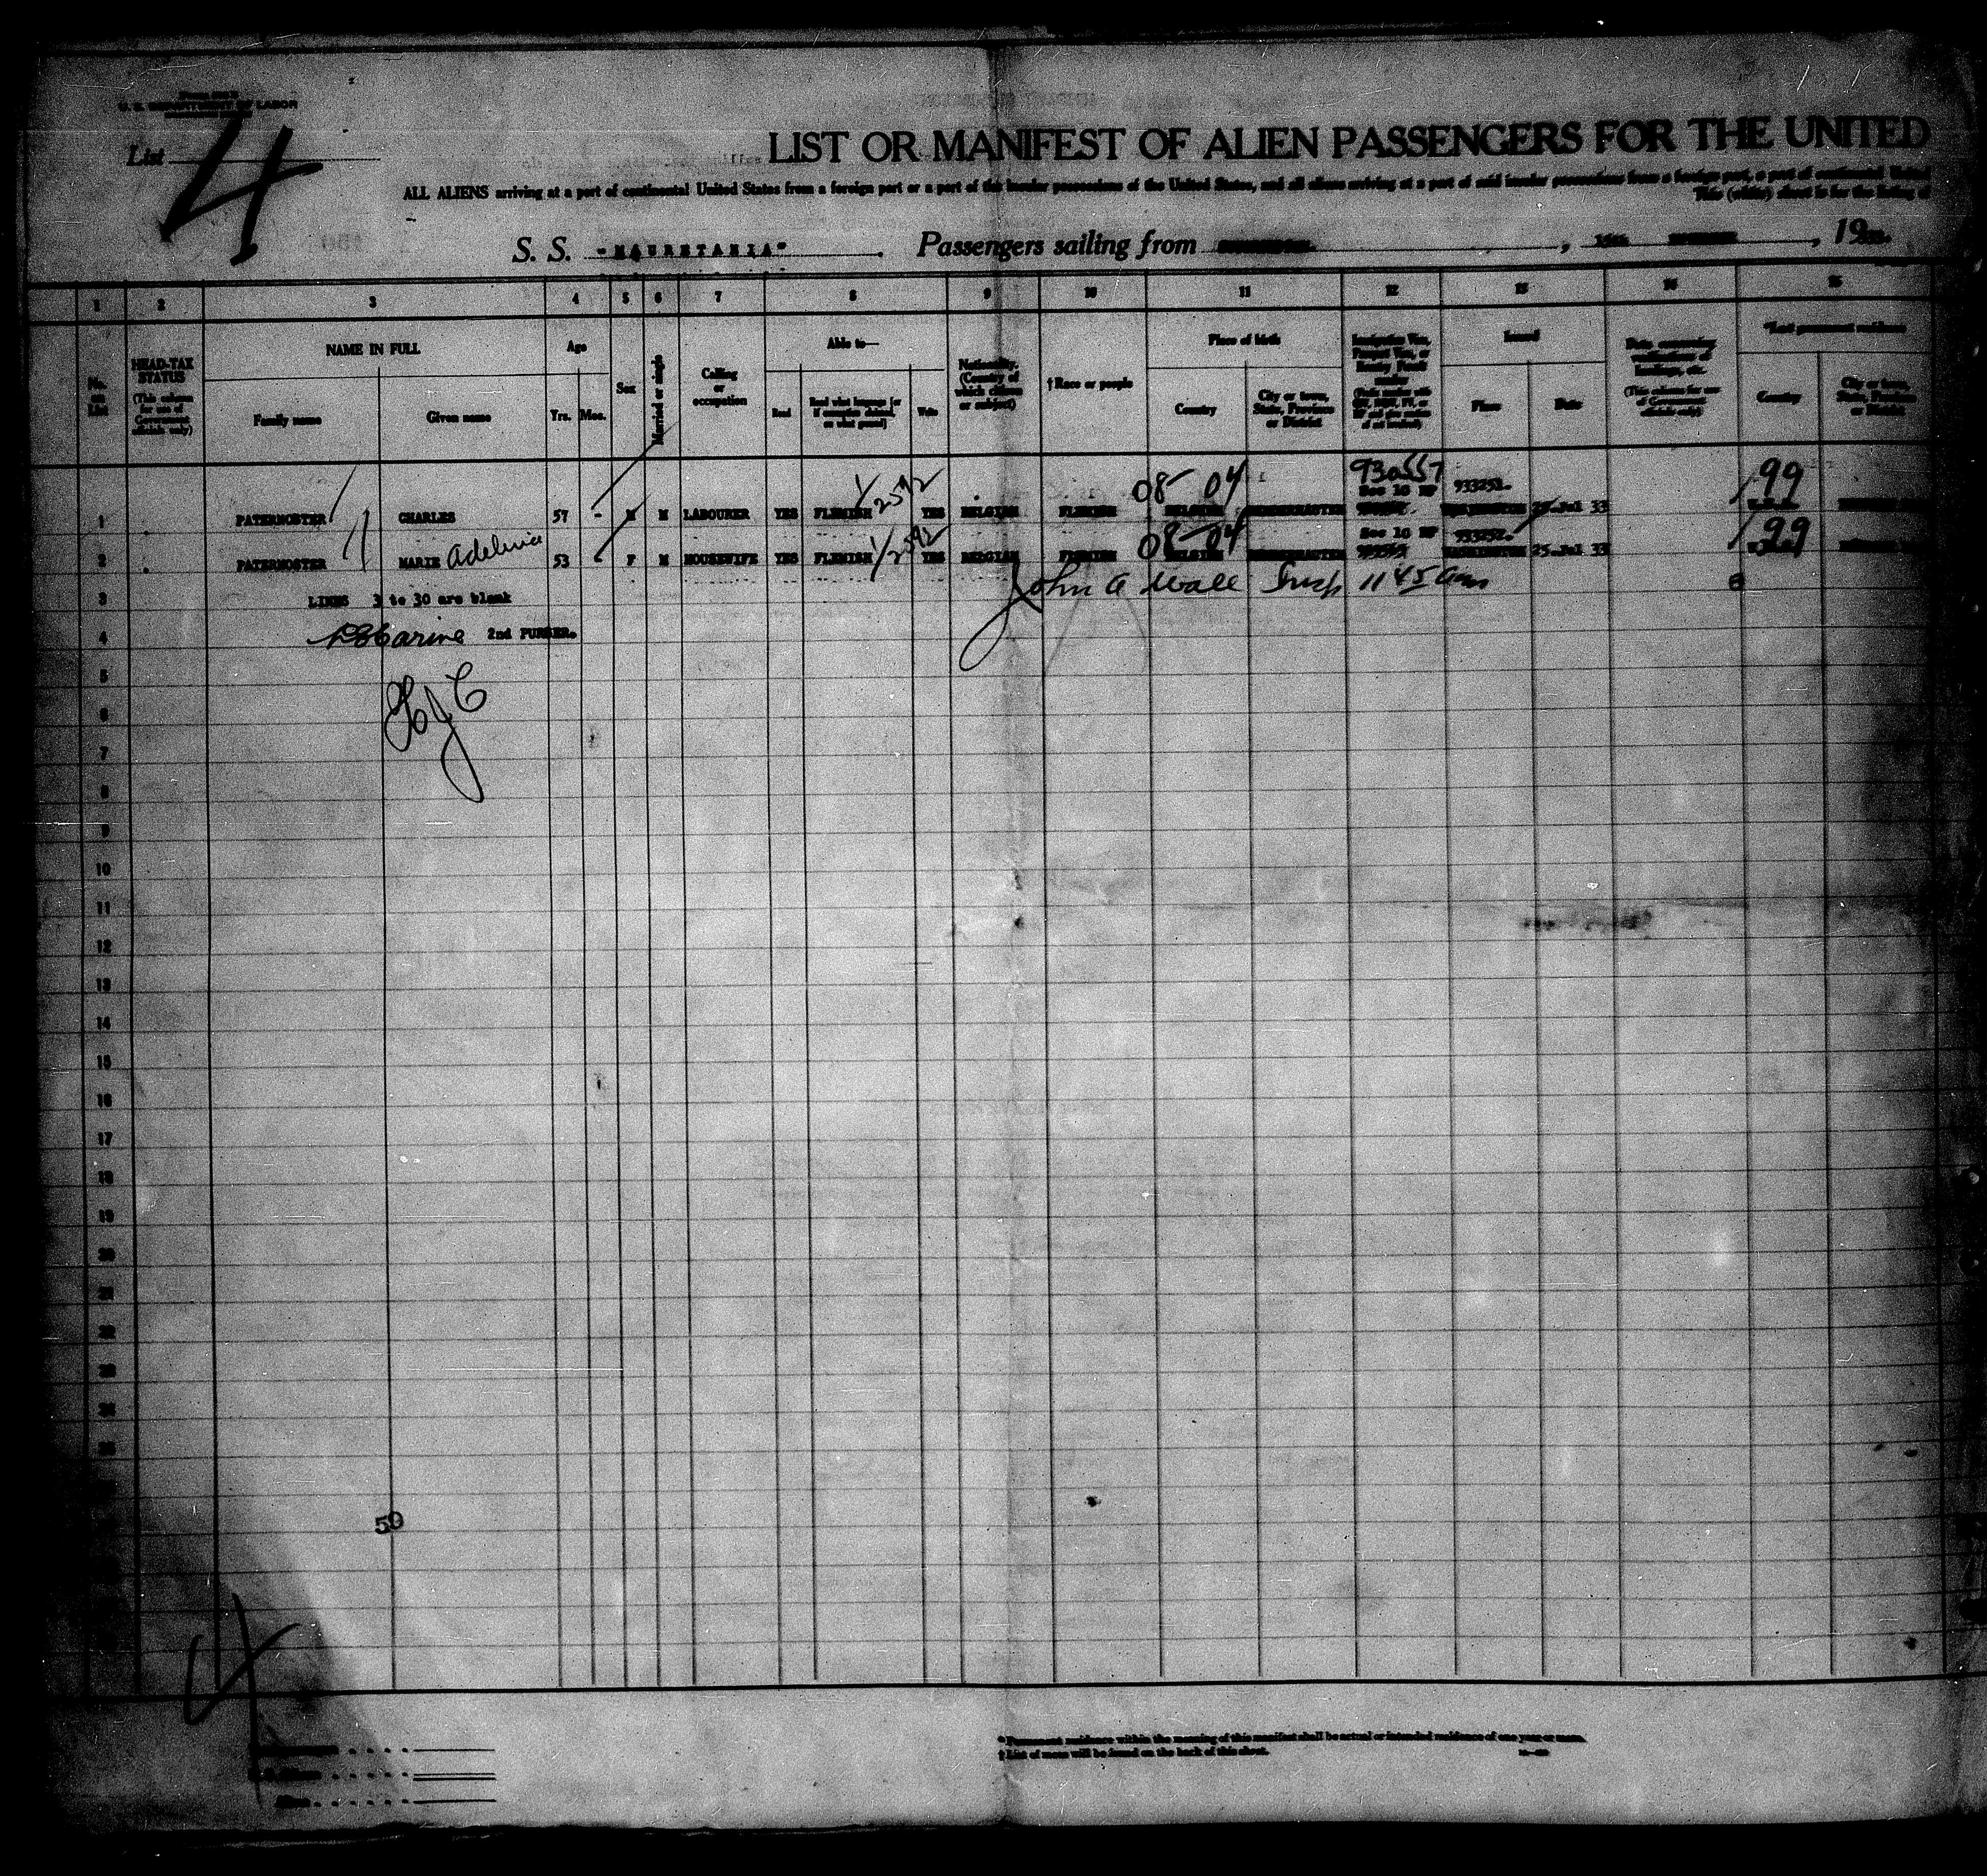 U. S. DEPARTMENT OF LABOR
List 4
LIST OR MANIFEST OF ALIEN PASSENGERS FOR THE UNITED
ALL ALIENS arriving at a port of continental United States from a foreign port or a port of the insular possessions of the United States, and all aliens arriving at a port of said insular possessions from a foreign port, a port of continental United
This (white) sheet is for the listing of
S. S. "MAURETANIA". Passengers sailing from , , 19
1 2 3 4 5 6 7 8 9 10 11 12 13 14 15
No. on List
HEAD-TAX STATUS (This column for use of Government officials only)
NAME IN FULL
Family name Given name
Age
Yrs. Mos.
Sex
Married or single
Calling or occupation
Able to—
Read Read what language [or if exemption claimed, on what ground] Write
Nationality. (Country of which citizen or subject)
† Race or people
Place of birth
Country City or town, State, Province or District
Immigration Visa, Passport Visa, or Reentry Permit number
Issued
Place Date
(This column for use of Government officials only)
*Last permanent residence
Country City or town, State, Province or District
08-04 930557 99
Sec 10 933251.
1 PATERNOSTER CHARLES 57 - M M LABOURER YES FLEMISH 1/2592 YES BELGIAN FLEMISH BELGIUM WASHINGTON 25 Jul 33
08-04 Sec 10 933252. 99
2 PATERNOSTER MARIE Adelmie 53 F M HOUSEWIFE YES FLEMISH 1/2592 YES BELGIAN FLEMISH BELGIUM WASHINGTON 25 Jul 33
3 LINES 3 to 30 are blank John A Wall Insp 11 45 am
4 2nd PURSER.
5
6
7
8
9
10
11
12
13
14
15
16
17
18
19
20
21
22
23
24
25
50
4
* Permanent residence within the meaning of this manifest shall be actual or intended residence of one year or more.
† List of races will be found on the back of this sheet.
Alien